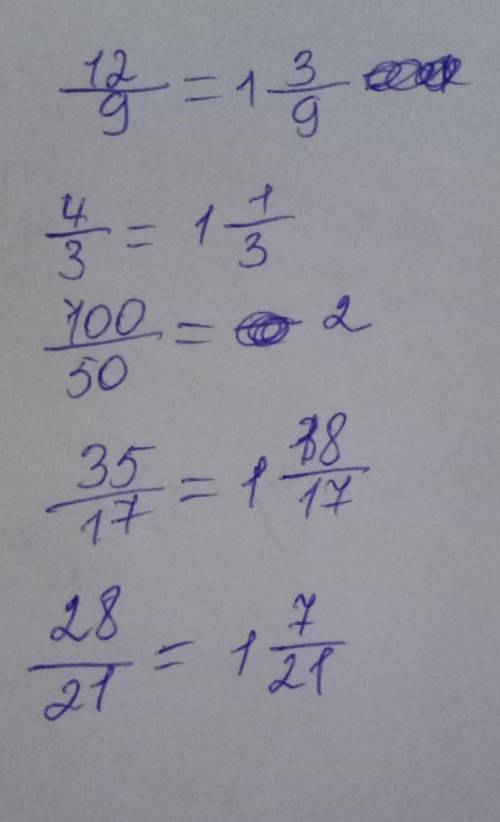 12/9 = 1 3/9
4/3 = 1 1/3
100/50 = 2
35/17 = 1 18/17
28/21 = 1 7/21